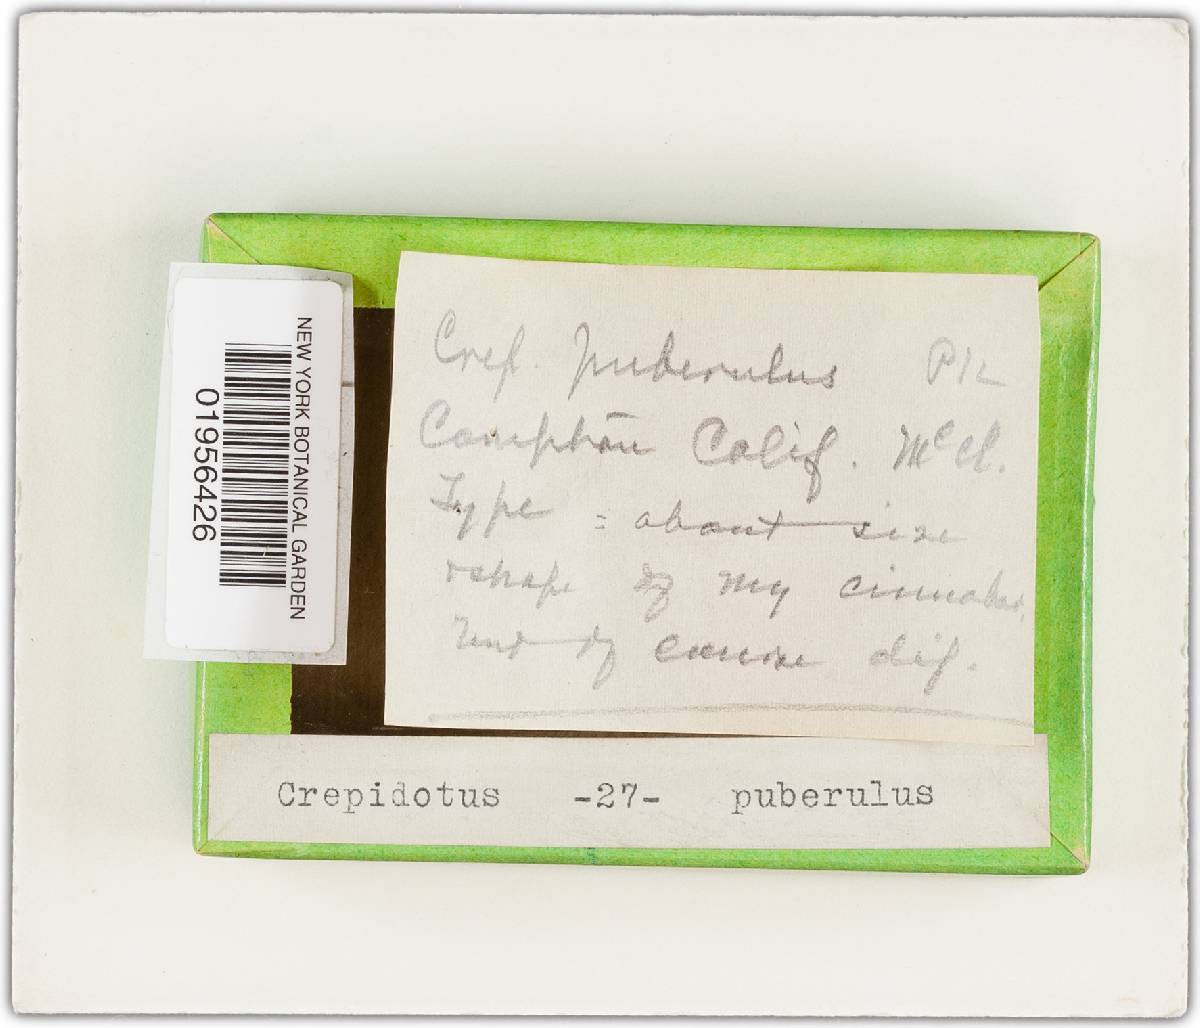 NEW YORK BOTANICAL GARDEN
01956426
Crep. puberulus Pk
Compton Calif. McCl.
Type = about size
& shape of my cinnabar.
but of course dif.
Crepidotus -27- puberulus